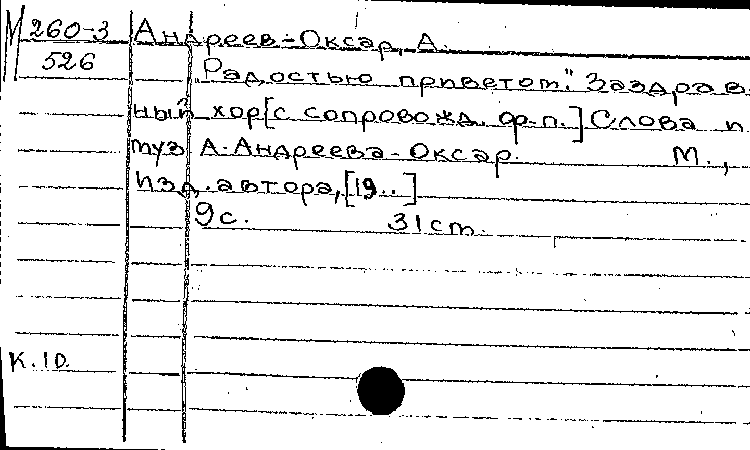 М 260-3
526
Андреев-Оксар, А.
"Радостью приветом." Заздрав-
ный хор [с сопровожд. ф-п.] Слова и
муз А. Андреева-Оксар. М.,
Изд. автора, [19..]
9с. 31см.
К. 10.